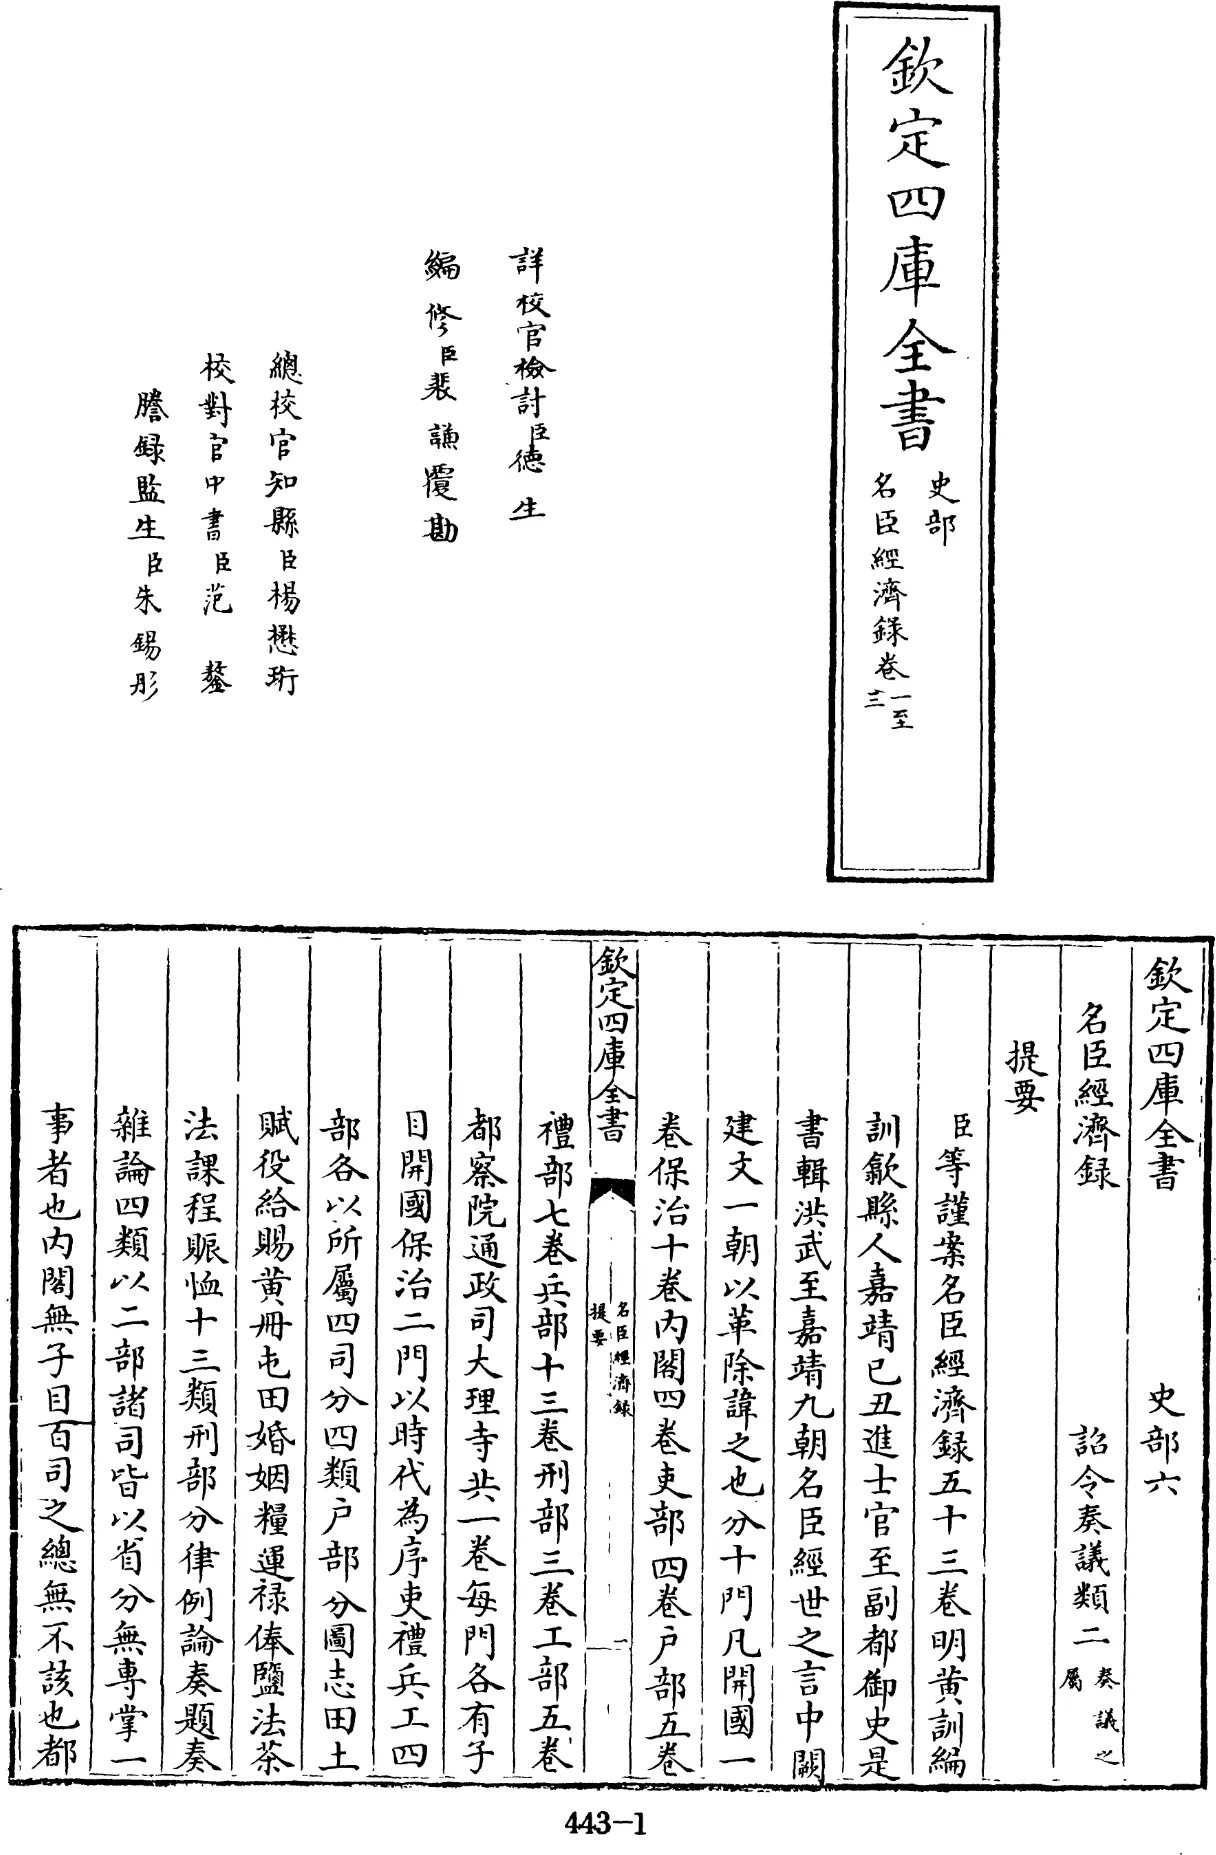 欽定四庫全書
史部
名臣經濟録卷
一至
三
詳校官檢討臣德生
編修臣裴謙覆勘
總校官知縣臣楊懋珩
校對官中書臣范鏊
謄録監生臣朱錫彤
欽定四庫全書 史部六
名臣經濟録 詔令奏議類二 奏議之屬
提要
臣等謹案名臣經濟録五十三卷明黄訓編
訓歙縣人嘉靖已丑進士官至副都御史是
書輯洪武至嘉靖九朝名臣經世之言中闕
建文一朝以革除諱之也分十門凡開國一
卷保治十卷内閣四卷吏部四卷户部五卷
欽定四庫全書 名臣經濟録 提要 一
禮部七卷兵部十三卷刑部三卷工部五卷
都察院通政司大理寺共一卷每門各有子
目開國保治二門以時代為序吏禮兵工四
部各以所屬四司分四類户部分圖志田土
賦役給賜黄冊屯田婚姻糧運禄俸鹽法茶
法課程賑恤十三類刑部分律例論奏題奏
雜論四類以二部諸司皆以省分無專掌一
事者也内閣無子目百司之總無不該也都
443-1